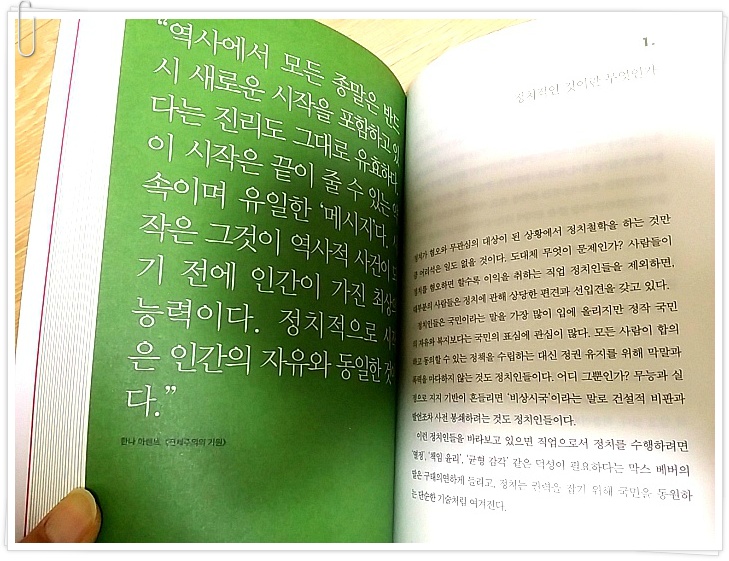 “역사에서 모든 종말은 반드
시 새로운 시작을 포함하고 있
다는 진리도 그대로 유효하다.
이 시작은 끝이 줄 수 있는 약
속이며 유일한 ‘메시지’다. 시
작은 그것이 역사적 사건이 되
기 전에 인간이 가진 최상의
능력이다. 정치적으로 시작
은 인간의 자유와 동일한 것이
다.”
한나 아렌트, 《전체주의의 기원》
1.
정치적인 것이란 무엇인가
정치가 혐오와 무관심의 대상이 된 상황에서 정치철학을 하는 것만
큼 어리석은 일도 없을 것이다. 도대체 무엇이 문제인가? 사람들이
정치를 혐오하면 할수록 이익을 취하는 직업 정치인들을 제외하면,
대부분의 사람들은 정치에 관해 상당한 편견과 선입견을 갖고 있다.
정치인들은 국민이라는 말을 가장 많이 입에 올리지만 정작 국민
의 자유와 복지보다는 국민의 표심에 관심이 많다. 모든 사람이 합의
하고 동의할 수 있는 정책을 수립하는 대신 정권 유지를 위해 막말과
폭력을 마다하지 않는 것도 정치인들이다. 어디 그뿐인가? 무능과 실
정으로 지지 기반이 흔들리면 ‘비상시국’이라는 말로 건설적 비판과
발언조차 사전 봉쇄하려는 것도 정치인들이다.
이런 정치인들을 바라보고 있으면 직업으로서 정치를 수행하려면
‘열정’, ‘책임 윤리’, ‘균형 감각’ 같은 덕성이 필요하다는 막스 베버의
말은 구태의연하게 들리고, 정치는 권력을 잡기 위해 국민을 동원하
는 단순한 기술처럼 여겨진다.